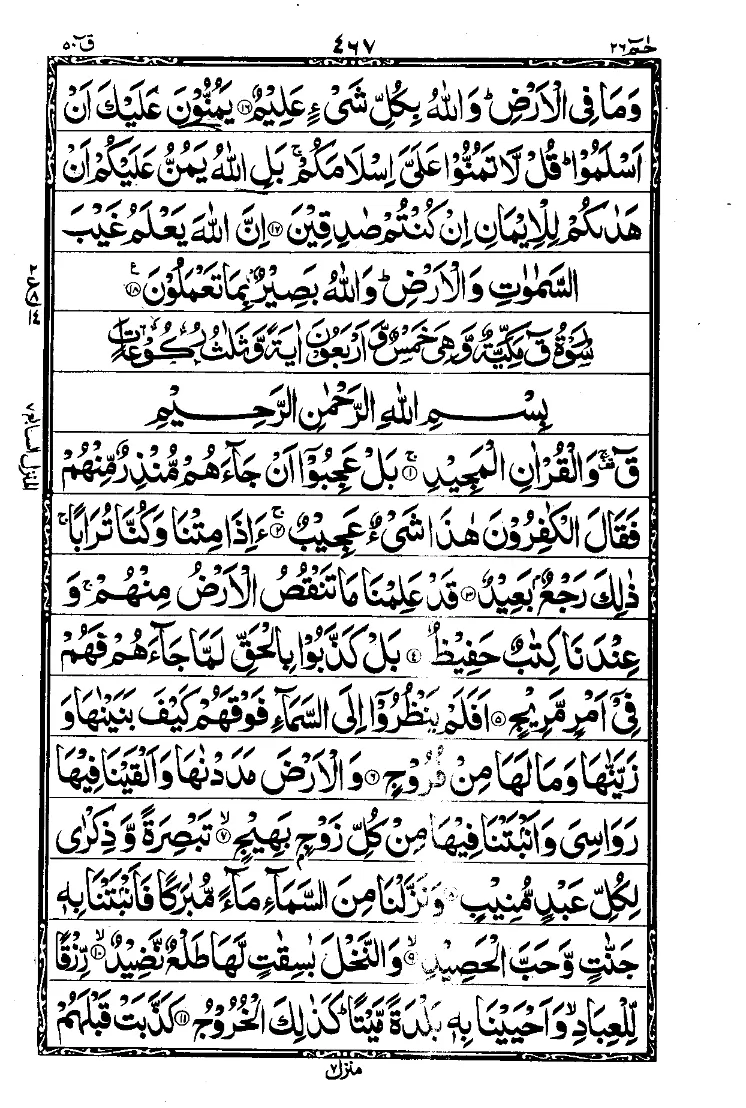 حٰمٓ ٢٦
٤٦٧
قٓ ٥٠
وَمَا فِى الْاَرْضِ ؕ وَاللّٰهُ بِكُلِّ شَىْءٍ عَلِيْمٌ ۝١٦ يَمُنُّوْنَ عَلَيْكَ اَنْ
اَسْلَمُوْا ؕ قُلْ لَّا تَمُنُّوْا عَلَىَّ اِسْلَامَكُمْ ۚ بَلِ اللّٰهُ يَمُنُّ عَلَيْكُمْ اَنْ
هَدٰىكُمْ لِلْاِيْمَانِ اِنْ كُنْتُمْ صٰدِقِيْنَ ۝١٧ اِنَّ اللّٰهَ يَعْلَمُ غَيْبَ
السَّمٰوٰتِ وَالْاَرْضِ ؕ وَاللّٰهُ بَصِيْرٌۢ بِمَا تَعْمَلُوْنَ ۝١٨
سُوْرَةُ قٓ مَكِّيَّةٌ وَّهِىَ خَمْسٌ وَّاَرْبَعُوْنَ اٰيَةً وَّثَلٰثُ رُكُوْعَاتٍ
بِسْمِ اللّٰهِ الرَّحْمٰنِ الرَّحِيْمِ
قٓ ۚ وَالْقُرْاٰنِ الْمَجِيْدِ ۝١ۚ بَلْ عَجِبُوْۤا اَنْ جَآءَهُمْ مُّنْذِرٌ مِّنْهُمْ
فَقَالَ الْكٰفِرُوْنَ هٰذَا شَىْءٌ عَجِيْبٌ ۝٢ۚ ءَاِذَا مِتْنَا وَكُنَّا تُرَابًا ۚ
ذٰلِكَ رَجْعٌۢ بَعِيْدٌ ۝٣ قَدْ عَلِمْنَا مَا تَنْقُصُ الْاَرْضُ مِنْهُمْ ۚ وَ
عِنْدَنَا كِتٰبٌ حَفِيْظٌ ۝٤ بَلْ كَذَّبُوْا بِالْحَقِّ لَمَّا جَآءَهُمْ فَهُمْ
فِىْۤ اَمْرٍ مَّرِيْجٍ ۝٥ اَفَلَمْ يَنْظُرُوْۤا اِلَى السَّمَآءِ فَوْقَهُمْ كَيْفَ بَنَيْنٰهَا وَ
زَيَّنّٰهَا وَمَا لَهَا مِنْ فُرُوْجٍ ۝٦ وَالْاَرْضَ مَدَدْنٰهَا وَاَلْقَيْنَا فِيْهَا
رَوَاسِىَ وَاَنْۢبَتْنَا فِيْهَا مِنْ كُلِّ زَوْجٍۢ بَهِيْجٍ ۝٧ۙ تَبْصِرَةً وَّذِكْرٰى
لِكُلِّ عَبْدٍ مُّنِيْبٍ ۝ وَنَزَّلْنَا مِنَ السَّمَآءِ مَآءً مُّبٰرَكًا فَاَنْۢبَتْنَا بِهٖ
جَنّٰتٍ وَّحَبَّ الْحَصِيْدِ ۝٩ۙ وَالنَّخْلَ بٰسِقٰتٍ لَّهَا طَلْعٌ نَّضِيْدٌ ۝١٠ۙ رِّزْقًا
لِّلْعِبَادِ ۙ وَاَحْيَيْنَا بِهٖ بَلْدَةً مَّيْتًا ؕ كَذٰلِكَ الْخُرُوْجُ ۝١١ كَذَّبَتْ قَبْلَهُمْ
منزل ٧